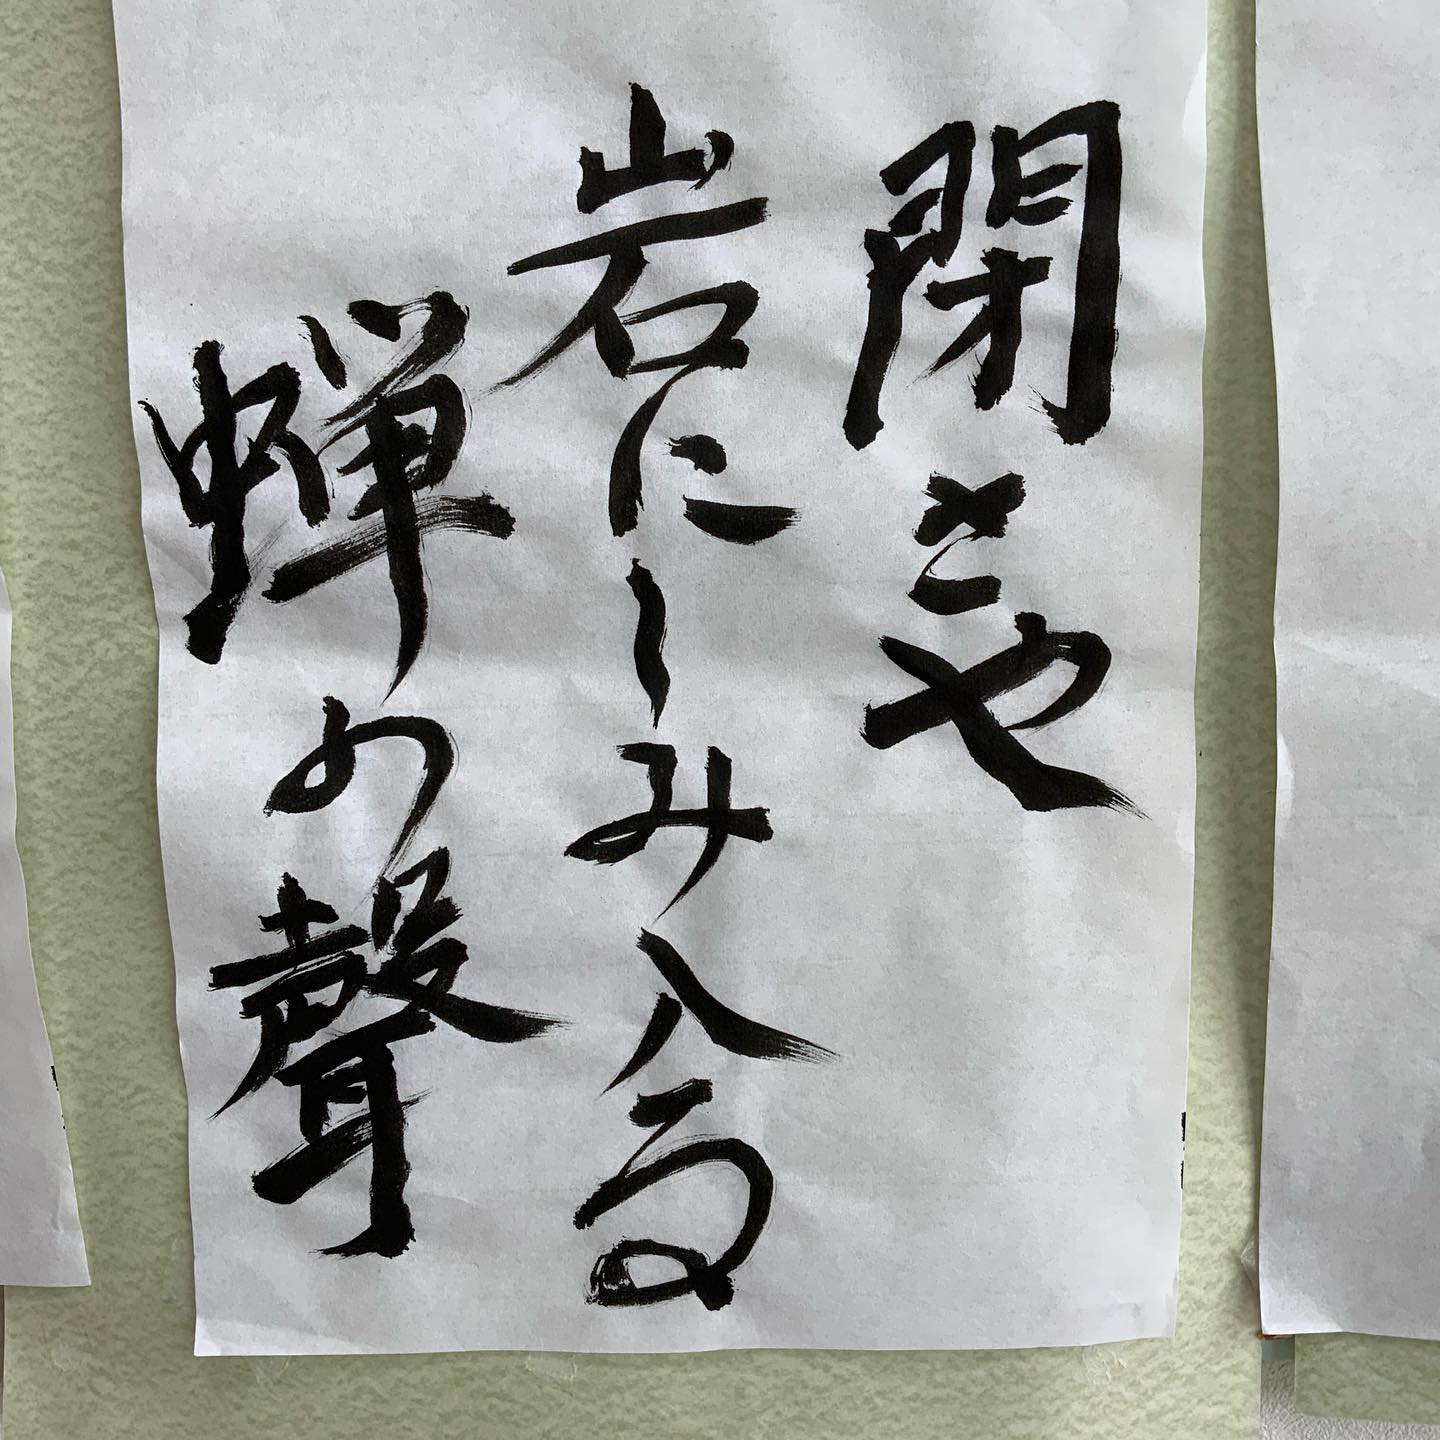 閉さや
岩にしみ入る
蝉の聲